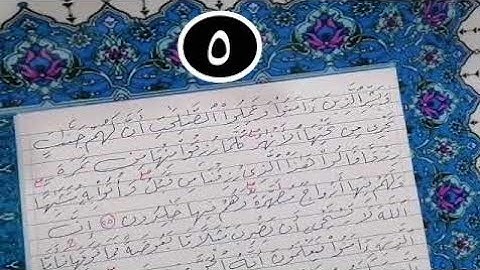 ٥
وَبَشِّرِ الَّذِينَ ءَامَنُوا۟ وَعَمِلُوا۟ الصَّٰلِحَٰتِ أَنَّ لَهُمْ جَنَّٰتٍ
تَجْرِى مِن تَحْتِهَا الْأَنْهَٰرُ كُلَّمَا رُزِقُوا۟ مِنْهَا مِن ثَمَرَةٍ
رِّزْقًا قَالُوا۟ هَٰذَا الَّذِى رُزِقْنَا مِن قَبْلُ وَأُتُوا۟ بِهِۦ مُتَشَٰبِهًا
وَلَهُمْ فِيهَا أَزْوَٰجٌ مُّطَهَّرَةٌ وَهُمْ فِيهَا خَٰلِدُونَ ٢٥ إِنَّ
اللَّهَ لَا يَسْتَحْىِۦ أَن يَضْرِبَ مَثَلًا مَّا بَعُوضَةً فَمَا فَوْقَهَا فَأَمَّا
الَّذِينَ ءَامَنُوا۟ فَيَعْلَمُونَ أَنَّهُ الْحَقُّ